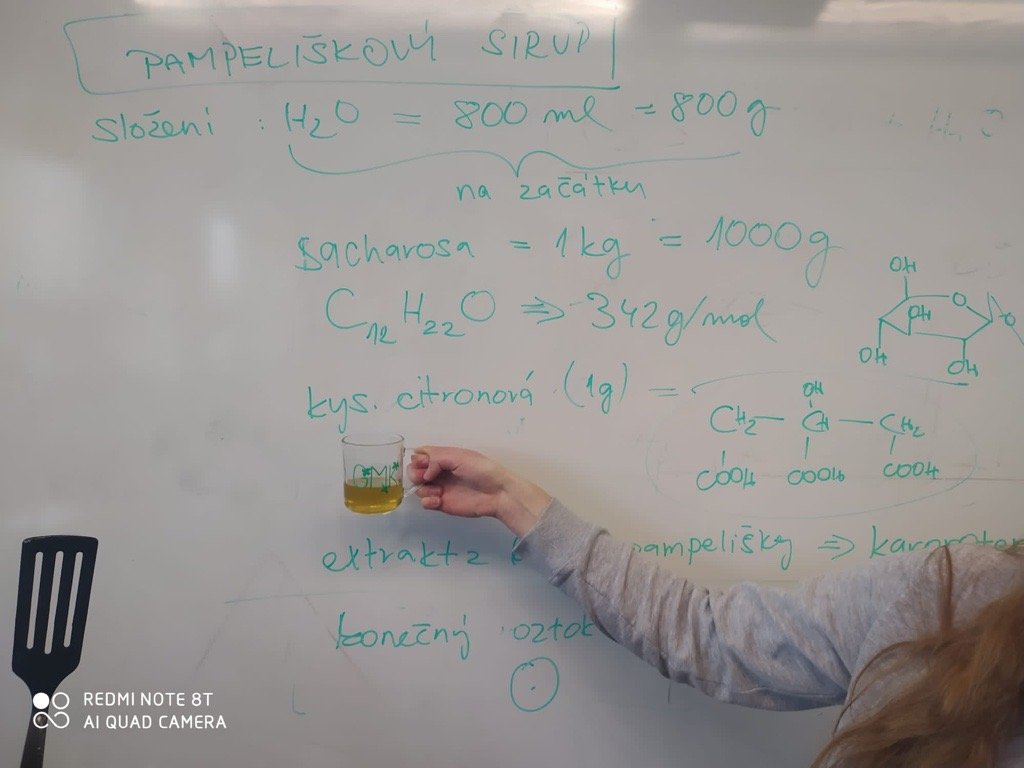 PAMPELIŠKOVÝ SIRUP
Složení : H₂O = 800 ml = 800g
na začátku
Sacharosa = 1kg = 1000g
C₁₂H₂₂O ⇒ 342g/mol
OH
O
OH
O
OH
OH
kys. citronová (1g) =
OH
CH₂ — CH — CH₂
COOH COOH COOH
GMK
extrakt z pampelišky ⇒
konečný oztok
REDMI NOTE 8T
AI QUAD CAMERA